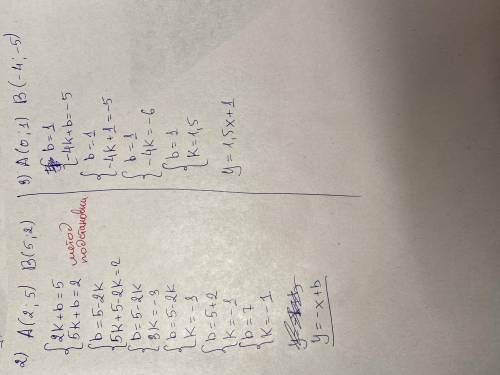 2) A(2; 5) B(5; 2)
{2k+b=5
{5k+b=2
метод
подстановки
{b=5-2k
{5k+5-2k=2
{b=5-2k
{3k=-3
{b=5-2k
{k=-3
{b=5+2
{k=-1
{b=7
{k=-1
y=-x+b
3) A(0; 1) B(-4; -5)
{b=1
{-4k+b=-5
{b=1
{-4k+1=-5
{b=1
{-4k=-6
{b=1
{k=1,5
y=1,5x+1